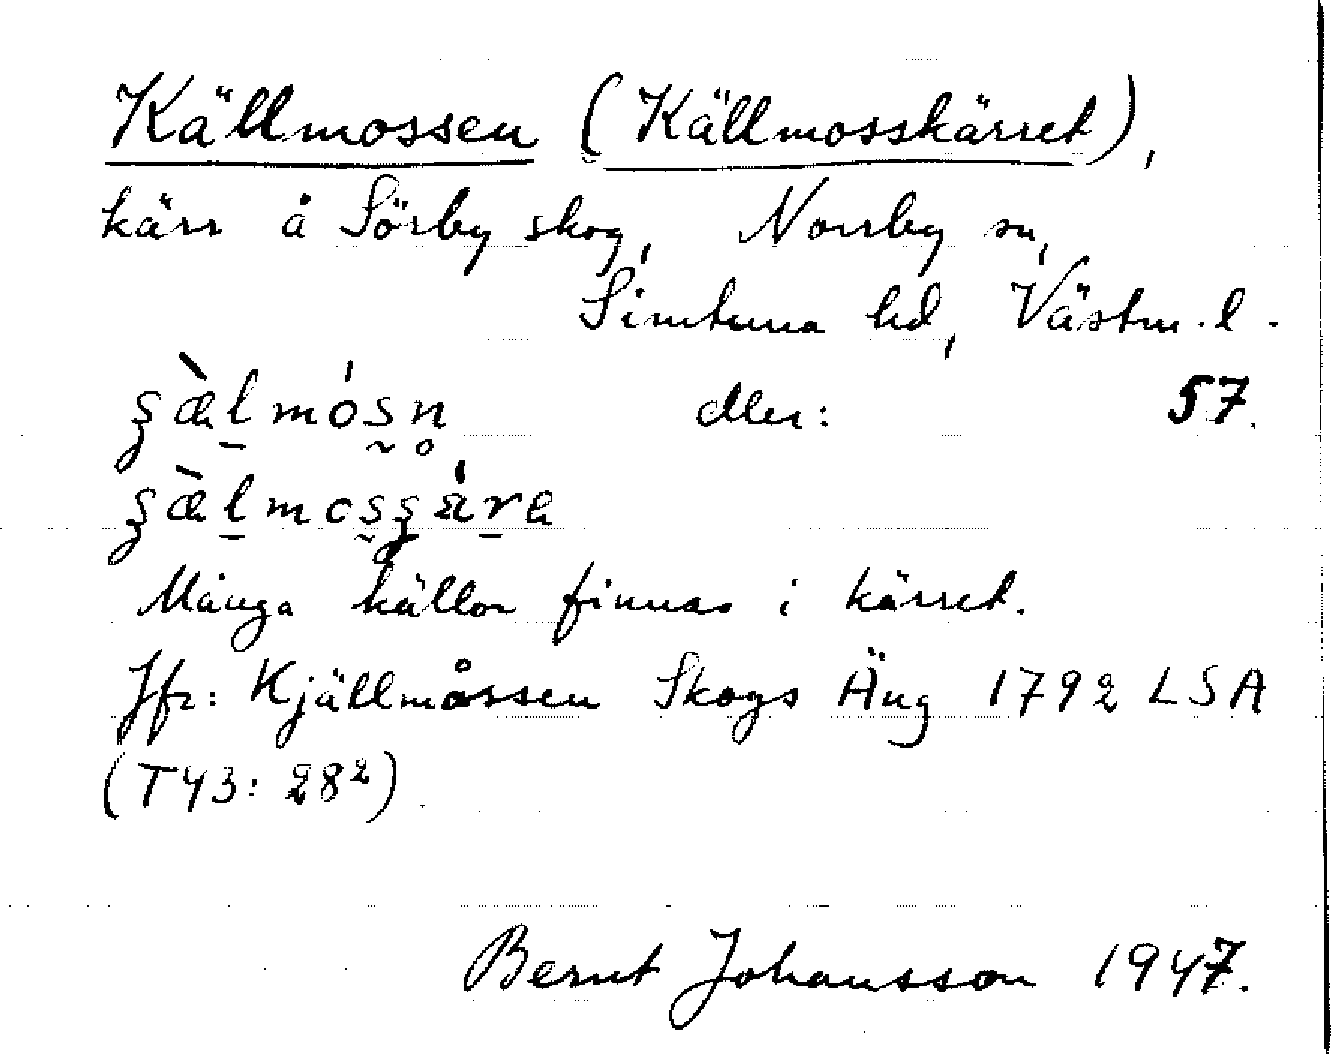 Källmossen (Källmosskärret),
kärr å Sörby skog, Norrby sn,
Simtuna hd, Västm. l.
eller: 57.
Många källor finnas i kärret.
Jfr: Kjällmåssen Skogs Äng 1792 LSA
(T43: 28²)
Bernt Johansson 1947.